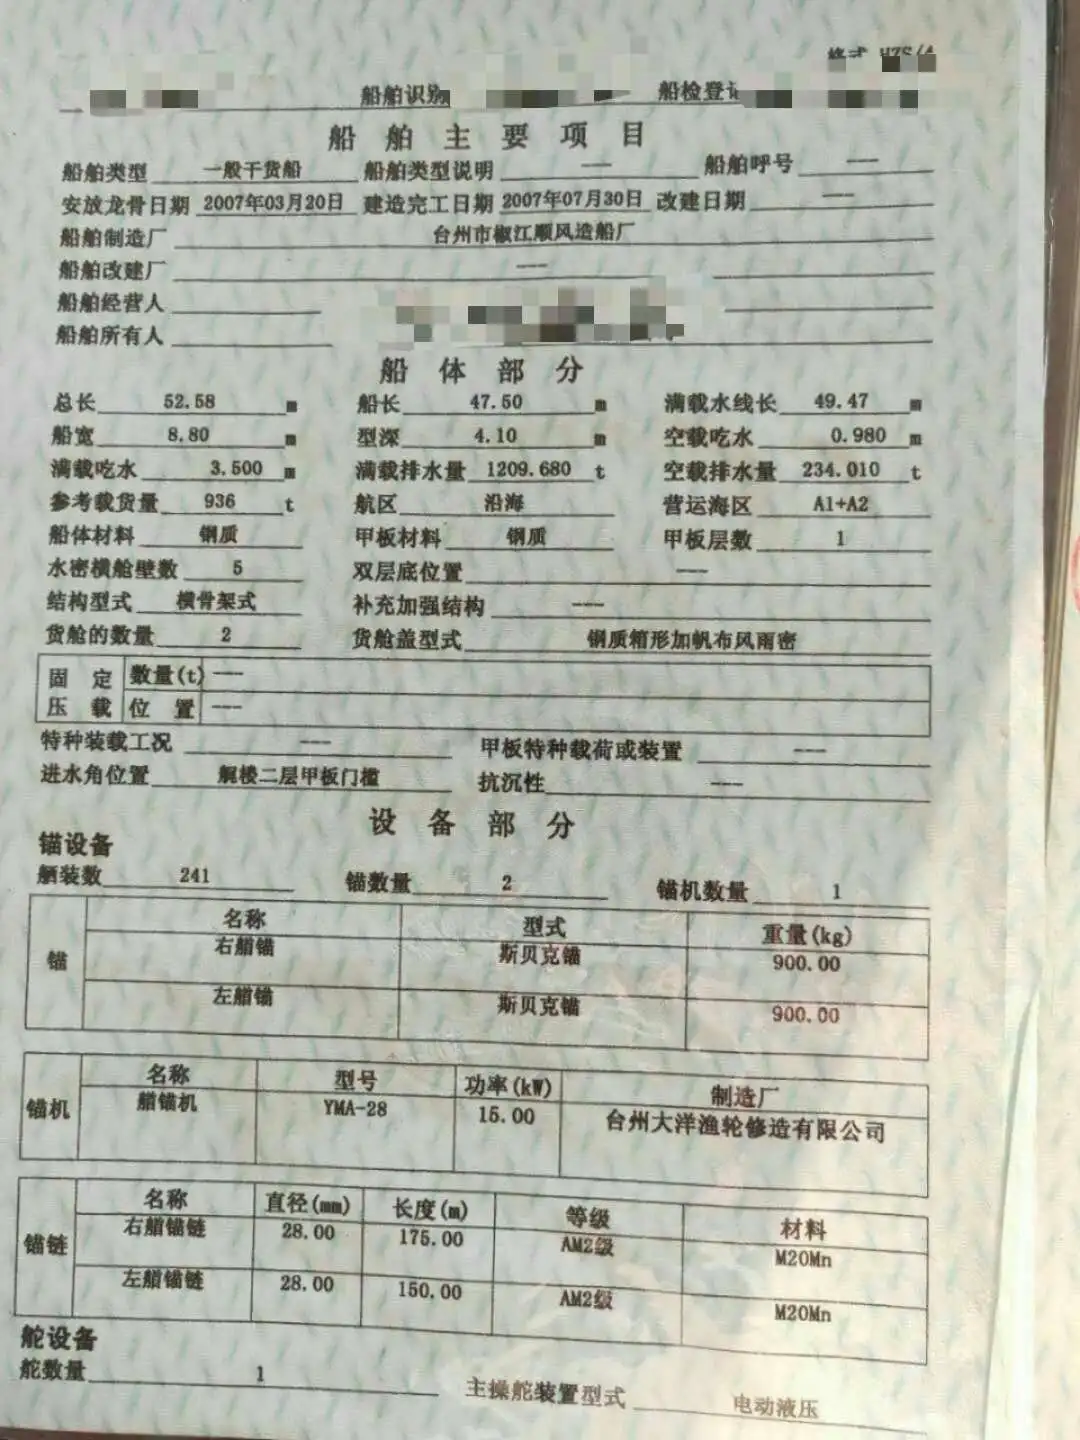 格式 HZS/4
船舶识别 船检登记
船舶主要项目
船舶类型 一般干货船 船舶类型说明 --- 船舶呼号 ---
安放龙骨日期 2007年03月20日 建造完工日期 2007年07月30日 改建日期 ---
船舶制造厂 台州市椒江顺风造船厂
船舶改建厂 ---
船舶经营人
船舶所有人
船体部分
总长 52.58 m 船长 47.50 m 满载水线长 49.47 m
船宽 8.80 m 型深 4.10 m 空载吃水 0.980 m
满载吃水 3.500 m 满载排水量 1209.680 t 空载排水量 234.010 t
参考载货量 936 t 航区 沿海 营运海区 A1+A2
船体材料 钢质 甲板材料 钢质 甲板层数 1
水密横舱壁数 5 双层底位置 ---
结构型式 横骨架式 补充加强结构 ---
货舱的数量 2 货舱盖型式 钢质箱形加帆布风雨密
固定 数量(t) ---
压载 位置 ---
特种装载工况 --- 甲板特种载荷或装置 ---
进水角位置 艉楼二层甲板门槛 抗沉性 ---
设备部分
锚设备
舾装数 241 锚数量 2 锚机数量 1
名称 型式 重量(kg)
锚 右艏锚 斯贝克锚 900.00
左艏锚 斯贝克锚 900.00
名称 型号 功率(kW) 制造厂
锚机 艏锚机 YMA-28 15.00 台州大洋渔轮修造有限公司
名称 直径(mm) 长度(m) 等级 材料
锚链 右艏锚链 28.00 175.00 AM2级 M20Mn
左艏锚链 28.00 150.00 AM2级 M20Mn
舵设备
舵数量 1 主操舵装置型式 电动液压